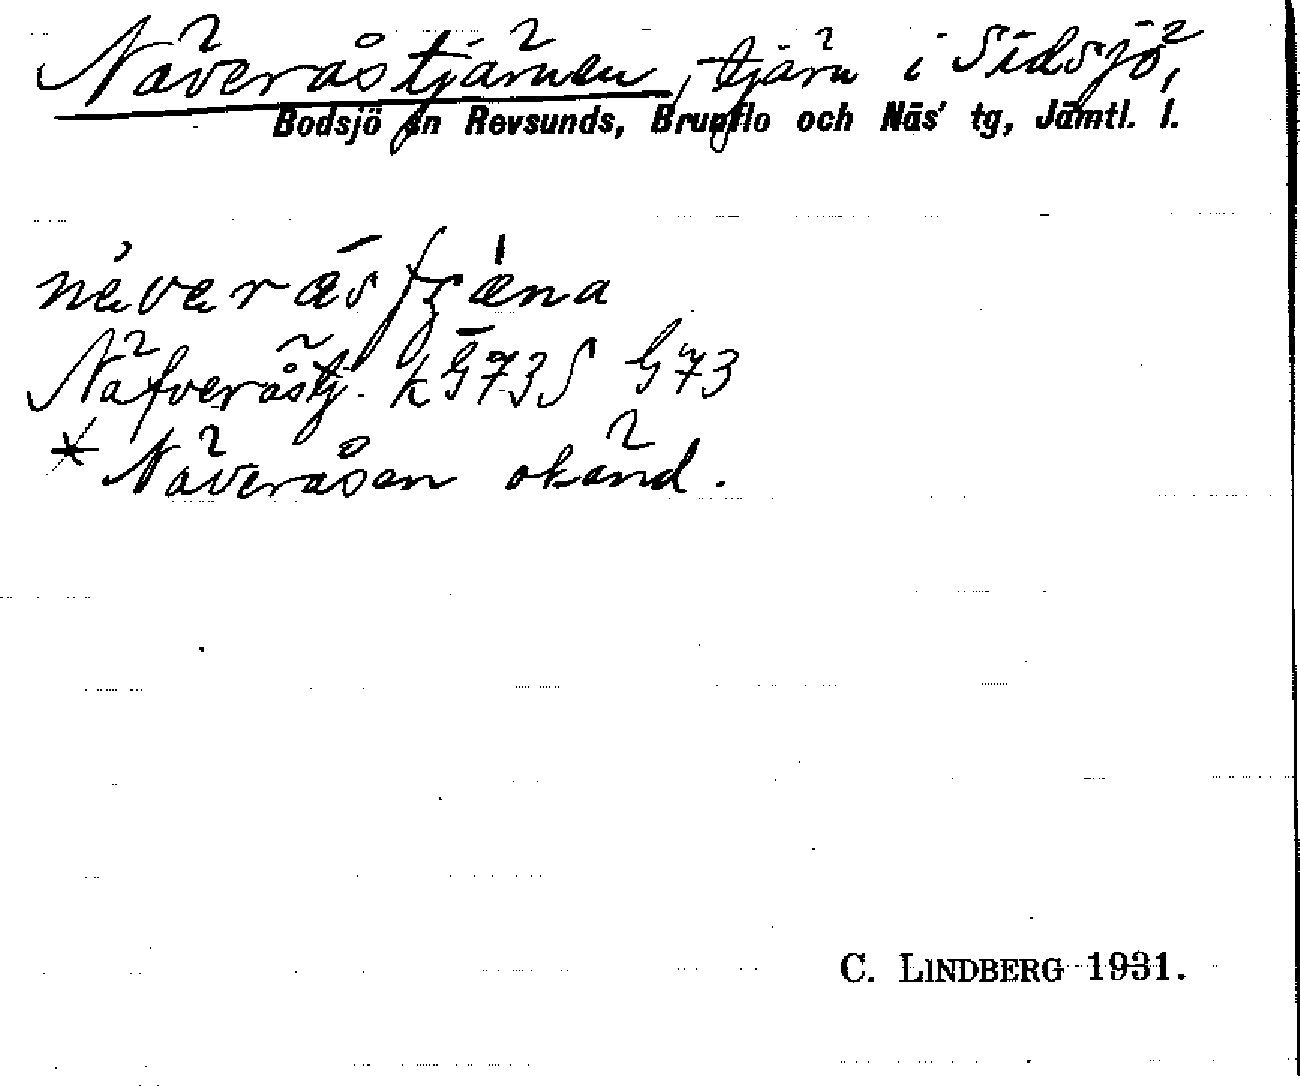 Näveråstjärnen, tjärn i Sidsjö,
Bodsjö sn Revsunds, Brunflo och Näs' tg, Jämtl. l.
Näfveråstj. k G73S G73
* Näveråsen okänd.
C. LINDBERG 1931.